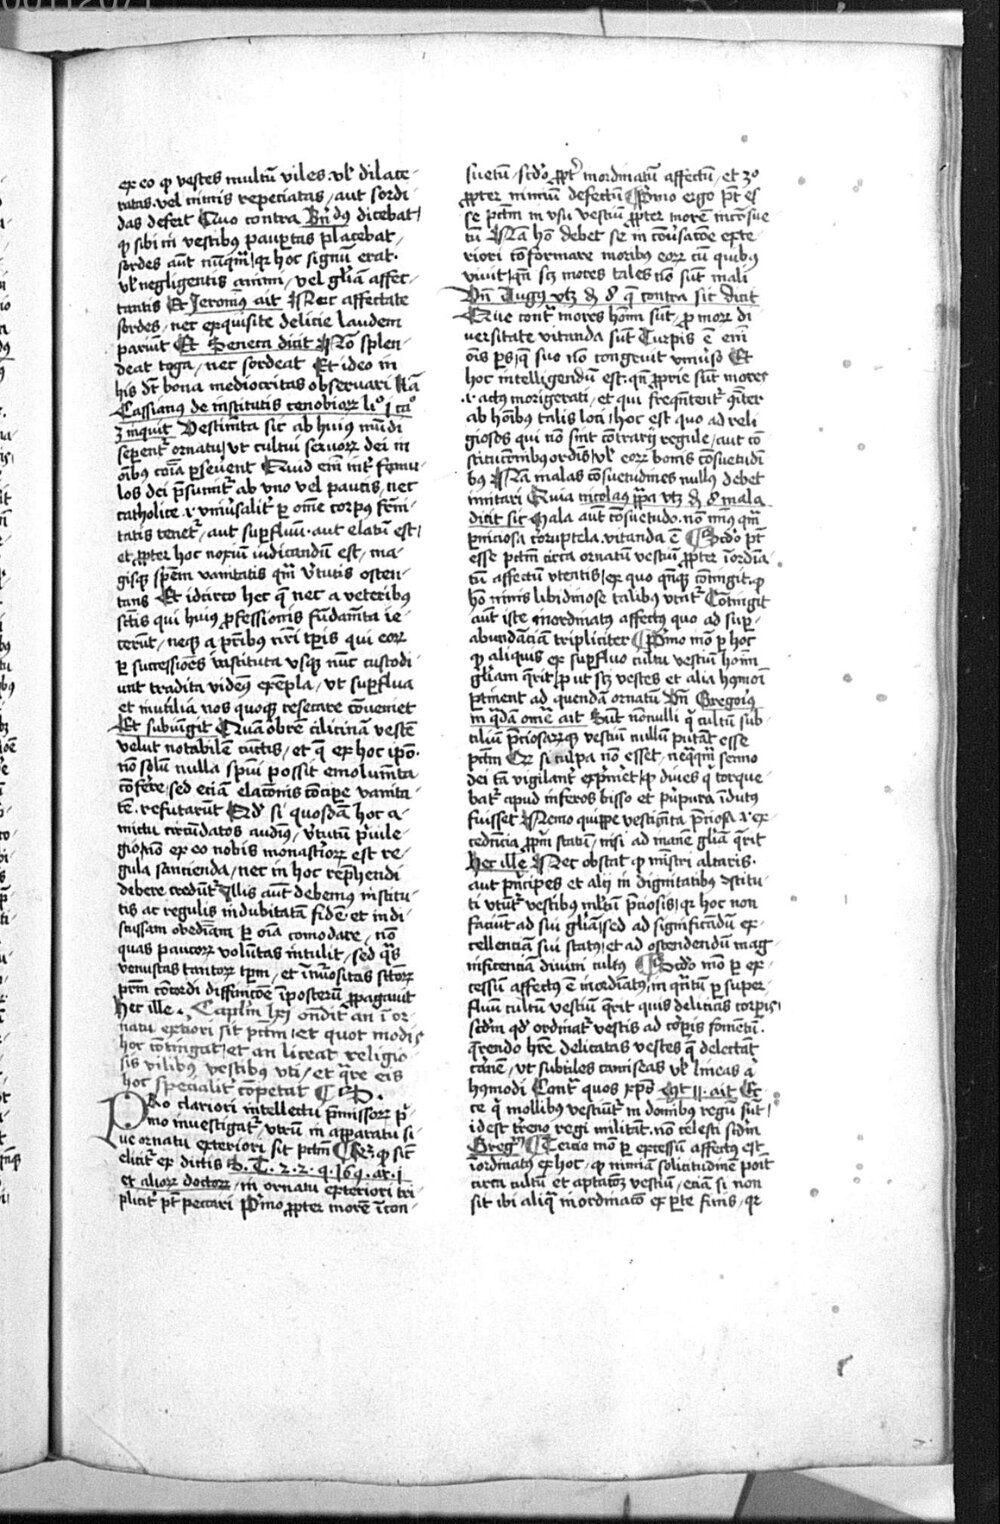 ex eo qꝫ vestes multũ viles. vl̛ dilace-
ratas. vel nimis repeciatas / aut sordi
das defert Quo contra Bn̄dus dicebat /
qꝫ sibi in vestibus paup̱tas placebat /
sordes aut̄ nũq̄m / qꝛ hoc signũ erat.
vl̛ negligentis animi / vel gl̄iam affec-
tantis Et Jeronimꝰ ait Nec affectate
sordes / nec exquisite delicie laudem
pariũt Et Seneca dicit Nõ splen-
deat toga / nec sordeat Et ideo in
his dꝫ bona mediocritas observari Nã
Cassianꝰ de institutis cenobioꝝ liº j caº
3 inquit Vestimẽta sic ab huiꝰ mũdi
sep̱ent̛ ornatu / vt cultui seruoꝝ dei in
oĩbꝰ cõia p̱seuerent Quid em̄ int̛ famu
los dei p̄sumit̛ ab vno vel paucis / nec
catholice .i. vniũsalit̛ p̱ om̄e corpꝰ frẽni-
tatis tenet̛ / aut sup̱fluũ. aut elatũ est /
et ꝓpter hoc noxiũ iudicandũ est / ma-
gisqꝫ sp̄em vanitatis q̄m v̛tutis osten-
tans Et idcirco hec q̄ nec a veteribꝰ
sc̄tis qui huiꝰ ꝓfessionis fũdamẽta ie-
cerũt / neqꝫ a pr̄ibꝰ nr̄i tp̱is qui eoꝝ
p̱ successiões instituta vsqꝫ nũc custodi-
unt tradita videmꝰ exẽpla / vt sup̱flua
et inutilia nos quoqꝫ resecare cõueniet
Et subiũgit Quãobrẽ cilicinã vestẽ
velut notabilẽ cũctis / et q̄ ex hoc ip̄o.
nõ solũ nulla sp̄ui possit emolumẽta
cõferre / sed eciã elac̃onis cõcipe vanita-
tẽ. refutarũt Q̱d̛ si quosdã hoc a-
mictu circũdatos audimꝰ / v̛tutũ p̛uile-
gio / nõ ex eo nobis monast̛ioꝝ est re-
gula sanctienda / nec in hoc rep̛hendi
debere credũt̛ Illis aut̄ debemꝰ institu-
tis ac regulis indubitatã fidẽ et indi-
scussam obediẽtiam p̱ oĩa comodare / nõ
quas paucoꝝ volũtas intulit / sed q̄s
venustas tantoꝝ tp̱m / et inũositas sc̄toꝝ
pr̄m cõcordi diffinic̃oe ĩposterũ ꝓpagauit
Hec ille. Cap̃lm lxj ondit̛ an ĩ or-
natu exteriori sit pc̄tm / et quot modis
hoc cõtingat / et an liceat religio-
sis vilibꝰ vestibꝰ vti / et q̄re eis
hoc specialit̛ cõpetat
PRo clariori intellectu p̄missoꝝ p̛-
mo inuestigat̛ / vtrũ in apparatu si-
ue ornatu exteriori sit pc̄tm Rñ. qꝫ sic̄
elicit̛ ex dictis S. T. 2. 2. q. 169. ar. j
et alioꝝ doctoꝝ / in ornatu exteriori tri-
plicit̛ pt̄ peccari P̛mo ꝓpter morẽ ĩcon-
suetũ. scd̃o ꝓpt̛ inordinatũ affectũ / et 3º
ꝓpter nimiũ defectũ P̛mo ergo pt̄ es-
se pc̄tm in vsu vestiũ ꝓpter morẽ incõsue
tũ Nã hõ debet se in cõũsac̃oe exte-
riori cõformare moribꝰ eoꝝ cũ quibꝰ
viuit / qn̄ scꝫ mores tales nõ sũt mali
Vn̄ Augꝰ vtꝫ di 8 q̄ contra sic dicit
Que cont̛ mores hoim̄ sũt / ꝓ moꝝ di
uersitate vitanda sũt Turpis ẽ em̄
oĩs ps / q̄ suo nõ congruit vniũso Et
hoc intelligendũ est. qn̄ ꝓprie sũt mores
.i. actꝰ morigerati / et qui freq̄ntent̛ cõiter
ab hoĩbꝰ talis loci / hoc est quo ad reli
giosos qui nõ sint cõtrarij regule / aut cõ
stituc̃oibꝰ ordĩs / vl̛ eoꝝ bonis cõsuetudĩ
bꝰ Nã malas cõsuetudines nullꝰ debet
imitari Quia nicolaꝰ pp̄a vtꝫ di 8 mala
dicit sic Mala aut̄ cõsuetudo. nõ minꝰ q̄m
p̱niciosa corruptela. vitanda ẽ Scd̃o pt̄
esse pc̄tm circa ornatũ vestiũ ꝓpter ĩordĩa
tũ affectũ vtentis / ex quo q̄nqꝫ cõtingit. qꝫ
hõ nimis libidinose talibꝰ vtat̛ Cõtingit
aut̄ iste inordinatꝰ affectꝰ quo ad sup̱-
abundãciam tripliciter P̛mo mõ p̱ hoc
qꝫ aliquis ex sup̱fluo cultu vestiũ hoim̄
gl̄iam q̄rit / ꝓut scꝫ vestes et alia hꝰmõi
p̱tinent ad quendã ornatũ Vn̄ Gregoriꝰ
in q̄dã omel̛ ait Sũt nonnulli q̛ cultũ sub
tiliũ p̛ciosaꝝqꝫ vestiũ nullũ putãt esse
pc̄tm Qꝛ si culpa nõ esset / neq̄q̄m sermo
dei tã vigilant̛ exp̛meret / qꝫ diues q̛ torque-
bat̛ apud inferos bisso et purpura ĩdutꝰ
fuisset Nemo quippe vestimẽta p̛ciosa .i. ex-
cedencia ꝓpriũ statũ / nisi ad inanẽ gl̄iã q̄rit
Hec ille Nec obstat qꝫ mĩstri altaris.
aut p̛ncipes et alij in dignitatibꝰ ꝯstitu-
ti vtũt̛ vestibꝰ ml̛tũ p̛ciosis / qꝛ hoc non
faciũt ad sui gl̄iã / sed ad significãdũ ex-
cellenciã sui statꝰ / et ad ostendendũ mag-
nificenciã diuini cultꝰ Scd̃o mõ p̱ ex-
cessũ affectꝰ ẽ inordiatꝰ / in q̄ntũ p̱ super-
fluũ cultũ vestiũ q̄rit quis delicias corp̱is /
scd̃m qd̛ ordinat̛ vestis ad corp̱is fomentũ.
q̄rendo hr̄e delicatas vestes q̄ delectãt
carnẽ / vt subtiles camiseas vl̛ lineas aut
hꝰmodi Cont̛ quos xp̄s Mt 11. ait Ec-
ce q̛ mollibꝰ vestiũt̛ in domibꝰ regũ sũt /
id est terreno regi militãt. nõ celesti scd̃m
Greg̛ Tercio mõ p̱ excessũ affectꝰ est
ĩordinatꝰ ex hoc / qꝫ nimiã solicitudinẽ poĩt
circa cultũ et aptac̃oẽ vestiũ / eciã si non
sit ibi aliq̄ inordinac̃o ex p̱te finis / qꝛ